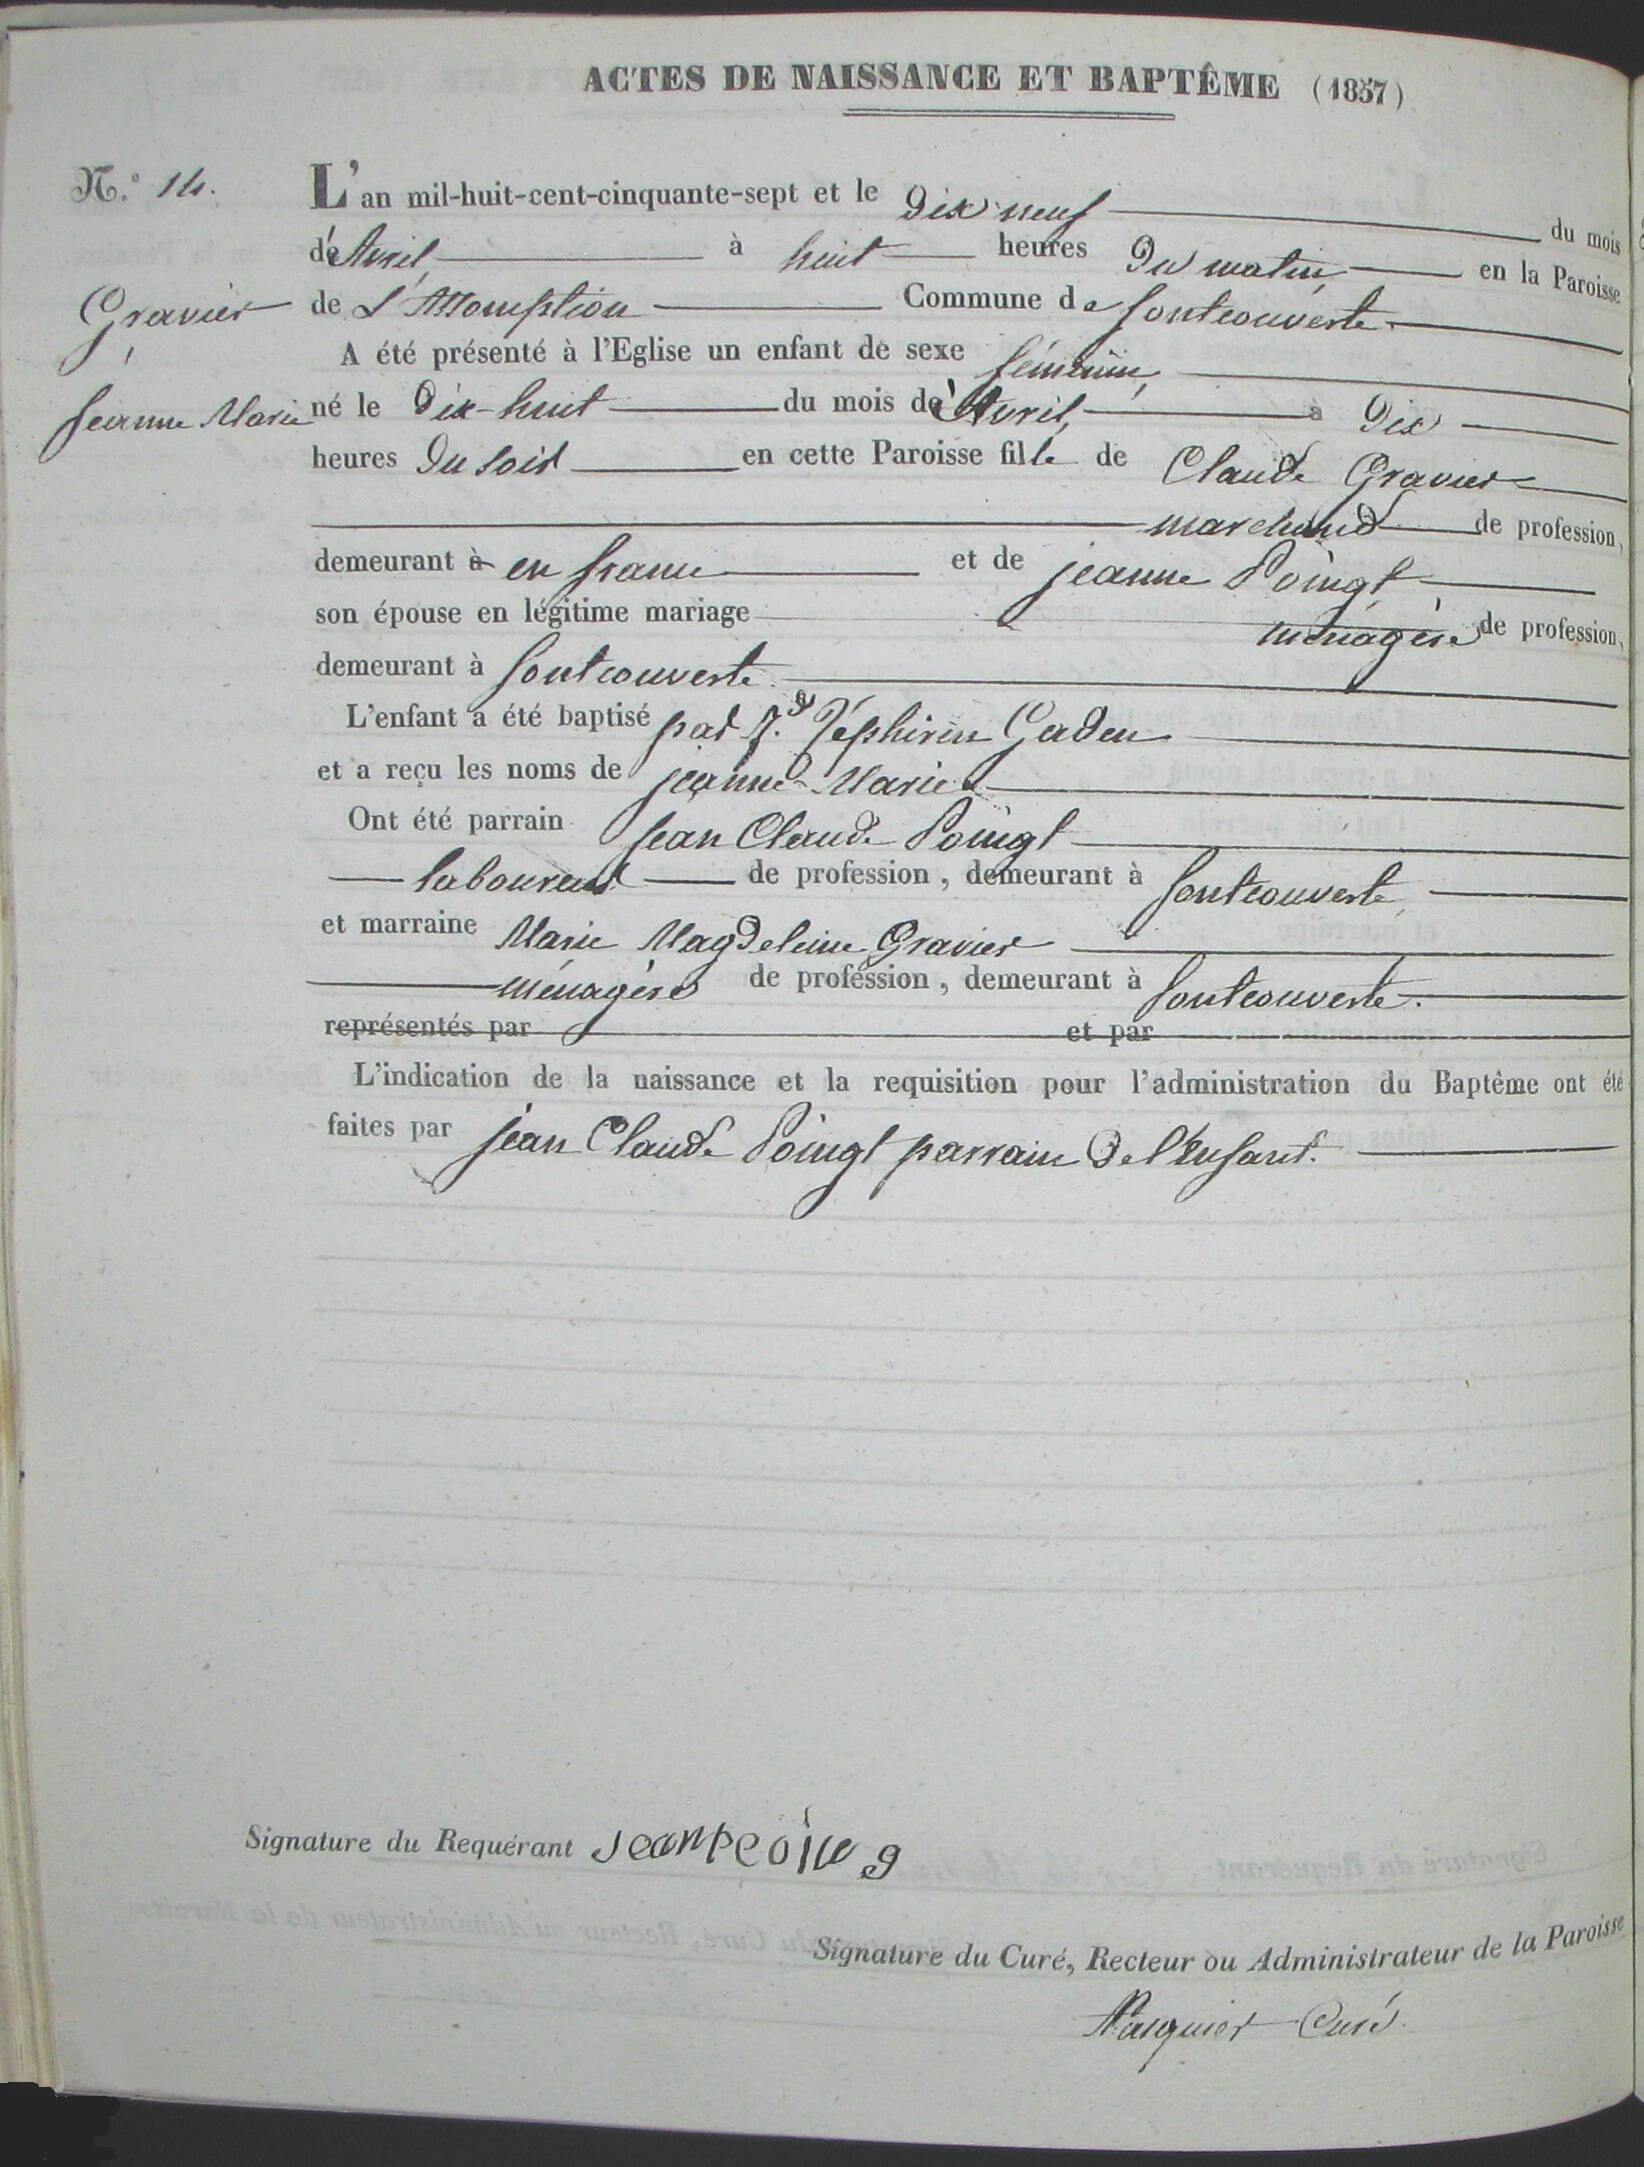 ACTES DE NAISSANCE ET BAPTÊME (1857)
N.º 14.
Gravier
Jeanne Marie
L'an mil-huit-cent-cinquante-sept et le Dix neuf du mois
d'Avril, à huit heures Du matin, en la Paroisse
de L'Assomption Commune de fontcouverte.
A été présenté à l'Eglise un enfant de sexe féminin,
né le Dix-huit du mois d'Avril, à Dix
heures Du soir en cette Paroisse fille de Claude Gravier
marchand de profession,
demeurant à en france et de jeanne Poingt
son épouse en légitime mariage ménagère de profession,
demeurant à fontcouverte.
L'enfant a été baptisé par Zéphirin
et a reçu les noms de jeanne-Marie
Ont été parrain Jean Claude Poingt
laboureur de profession, demeurant à fontcouverte,
et marraine Marie Magdeleine Gravier
ménagère de profession, demeurant à fontcouverte.
représentés par et par
L'indication de la naissance et la requisition pour l'administration du Baptême ont été
faites par Jean Claude Poingt parrain De l'Enfant.
Signature du Requérant
Signature du Curé, Recteur ou Administrateur de la Paroisse
Curé